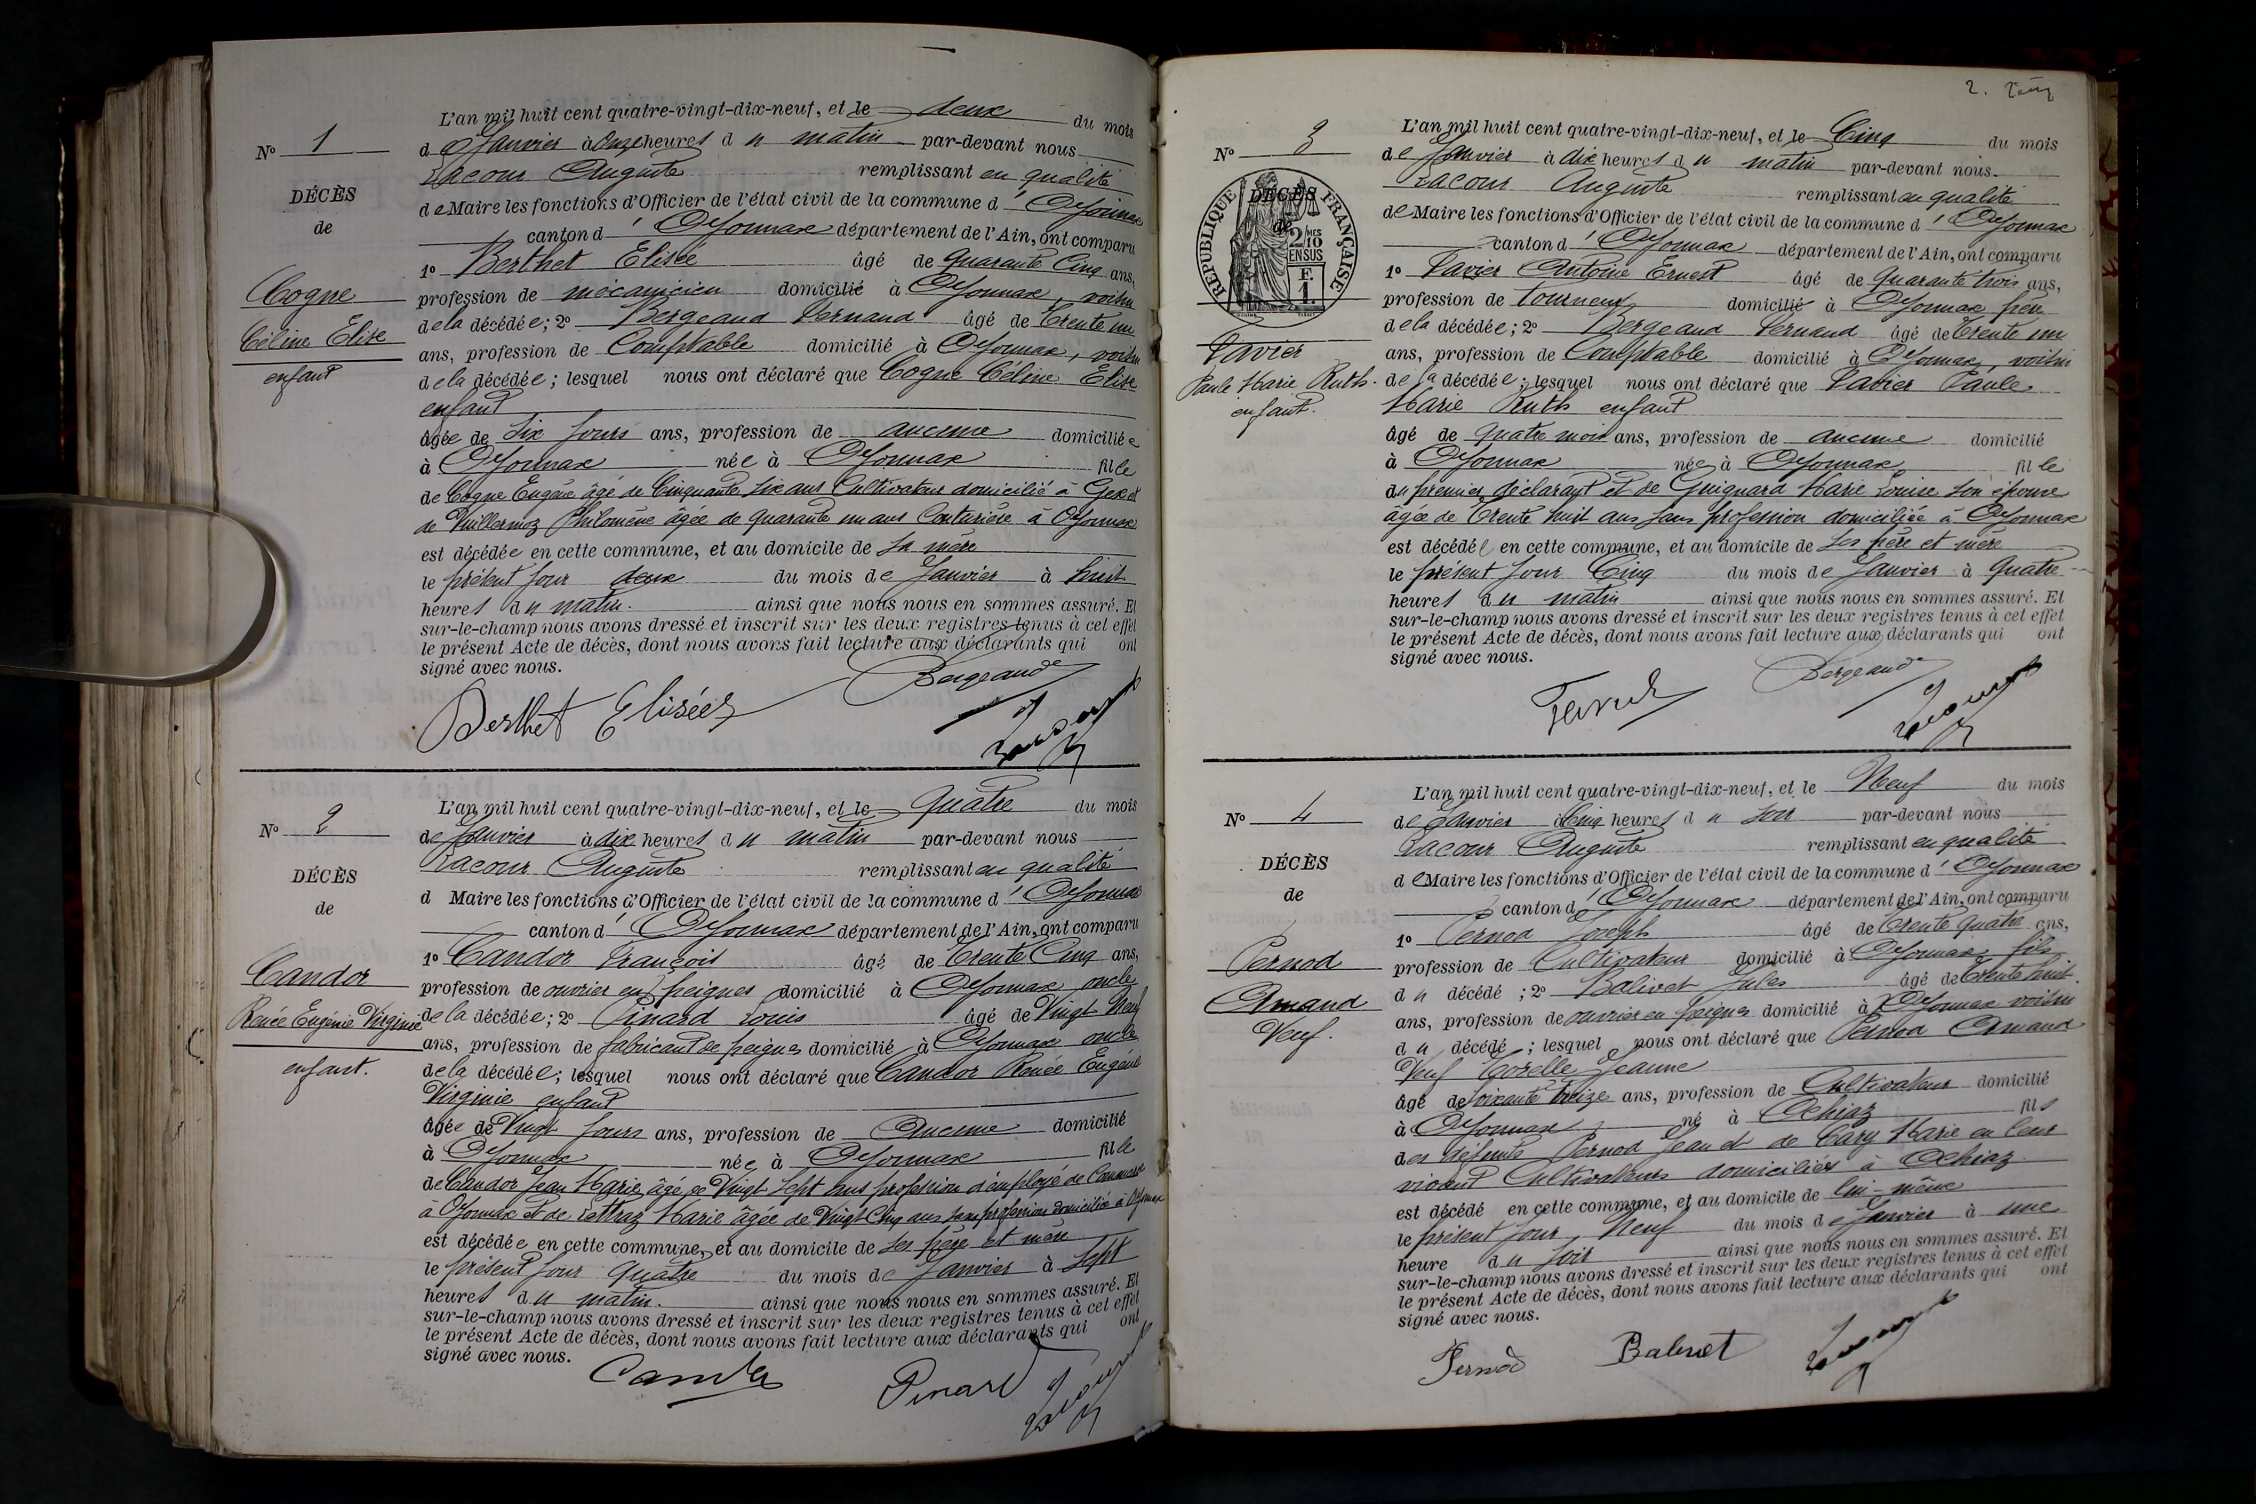 N° 1
DÉCÈS
de
Cogne
Céline Elise
enfant
L'an mil huit cent quatre-vingt-dix-neuf, et le deux du mois
de Janvier à Onze heures du matin par-devant nous
Lacour Auguste remplissant en qualité
de Maire les fonctions d'Officier de l'état civil de la commune d'Oyonnax
canton d'Oyonnax département de l'Ain, ont comparu
1° Berthet Elisée âgé de quarante Cinq ans,
profession de mécanicien domicilié à Oyonnax, voisin
de la décédée; 2° Bergeaud Fernand âgé de Trente un
ans, profession de Comptable domicilié à Oyonnax, voisin
de la décédée; lesquel nous ont déclaré que Cogne Céline Elise
enfant
âgée de six jours ans, profession de aucune domiciliée
à Oyonnax née à Oyonnax fille
de Cogne Eugène âgé de Cinquante six ans Cultivateur domicilié à Gex et
de Vuillermoz Philomène âgée de quarante un ans Couturière à Oyonnax
est décédée en cette commune, et au domicile de sa mère
le présent jour deux du mois de Janvier à huit
heures du matin. ainsi que nous nous en sommes assuré. Et
sur-le-champ nous avons dressé et inscrit sur les deux registres tenus à cet effet
le présent Acte de décès, dont nous avons fait lecture aux déclarants qui ont
signé avec nous.
Berthet Elisée Bergeaud Lacour
N° 2
DÉCÈS
de
Candor
Renée Eugénie Virginie
enfant.
L'an mil huit cent quatre-vingt-dix-neuf, et le Quatre du mois
de Janvier à dix heures du matin par-devant nous
Lacour Auguste remplissant en qualité
d Maire les fonctions d'Officier de l'état civil de la commune d'Oyonnax
canton d'Oyonnax département de l'Ain, ont comparu
1° Candor François âgé de Trente Cinq ans,
profession de ouvrier en peignes domicilié à Oyonnax oncle
de la décédée; 2° Pinard Louis âgé de Vingt Neuf
ans, profession de fabricant de peignes domicilié à Oyonnax oncle
de la décédée; lesquel nous ont déclaré que Candor Renée Eugénie
Virginie enfant
âgée de Vingt jours ans, profession de Aucune domicilié
à Oyonnax née à Oyonnax fille
de Candor Jean Marie âgé de Vingt sept ans profession d'employé de Commerce
à Oyonnax et de Lattraz Marie âgée de Vingt Cinq ans sans profession domiciliée à Oyonnax
est décédée en cette commune, et au domicile de ses père et mère
le présent jour quatre du mois de Janvier à sept
heures du matin. ainsi que nous nous en sommes assuré. Et
sur-le-champ nous avons dressé et inscrit sur les deux registres tenus à cet effet
le présent Acte de décès, dont nous avons fait lecture aux déclarants qui ont
signé avec nous.
Candor Pinard Lacour
2.
N° 3
RÉPUBLIQUE FRANÇAISE
DÉCÈS
de
2/10 MES
EN SUS
F.
1.
Tavier
Paule Marie Ruth.
enfant.
L'an mil huit cent quatre-vingt-dix-neuf, et le Cinq du mois
de Janvier à dix heures du matin par-devant nous
Lacour Auguste remplissant en qualité
de Maire les fonctions d'Officier de l'état civil de la commune d'Oyonnax
canton d'Oyonnax département de l'Ain, ont comparu
1° Tavier Antoine Ernest âgé de quarante trois ans,
profession de tourneur domicilié à Oyonnax père
de la décédée; 2° Bergeaud Fernand âgé de Trente un
ans, profession de Comptable domicilié à Oyonnax, voisin
de la décédée; lesquel nous ont déclaré que Tavier Paule
Marie Ruth enfant
âgé de quatre mois ans, profession de aucune domicilié
à Oyonnax née à Oyonnax fille
du premier déclarant et de Guignard Marie Louise son épouse
âgée de Trente huit ans sans profession domiciliée à Oyonnax
est décédée en cette commune, et au domicile de ses père et mère
le présent jour Cinq du mois de Janvier à quatre
heures du matin ainsi que nous nous en sommes assuré. Et
sur-le-champ nous avons dressé et inscrit sur les deux registres tenus à cet effet
le présent Acte de décès, dont nous avons fait lecture aux déclarants qui ont
signé avec nous.
Bergeaud Lacour
N° 4
DÉCÈS
de
Pernod
Armand
Veuf.
L'an mil huit cent quatre-vingt-dix-neuf, et le Neuf du mois
de Janvier à Cinq heures du soir par-devant nous
Lacour Auguste remplissant en qualité
de Maire les fonctions d'Officier de l'état civil de la commune d'Oyonnax
canton d'Oyonnax département de l'Ain, ont comparu
1° Pernod Joseph âgé de Trente quatre ans,
profession de Cultivateur domicilié à Oyonnax fils
du décédé ; 2° Balivet Jules âgé de Trente huit
ans, profession de ouvrier en peignes domicilié à Oyonnax voisin
du décédé ; lesquel nous ont déclaré que Pernod Armand
Veuf Jeanne
âgé de soixante treize ans, profession de Cultivateur domicilié
à Oyonnax né à Ochiaz fils
des défunts Pernod Jean et de Cary Marie en leur
vivant Cultivateurs domiciliés à Ochiaz
est décédé en cette commune, et au domicile de lui-même
le présent jour Neuf du mois de Janvier à une
heure du soir ainsi que nous nous en sommes assuré. Et
sur-le-champ nous avons dressé et inscrit sur les deux registres tenus à cet effet
le présent Acte de décès, dont nous avons fait lecture aux déclarants qui ont
signé avec nous.
Pernod Balivet Lacour